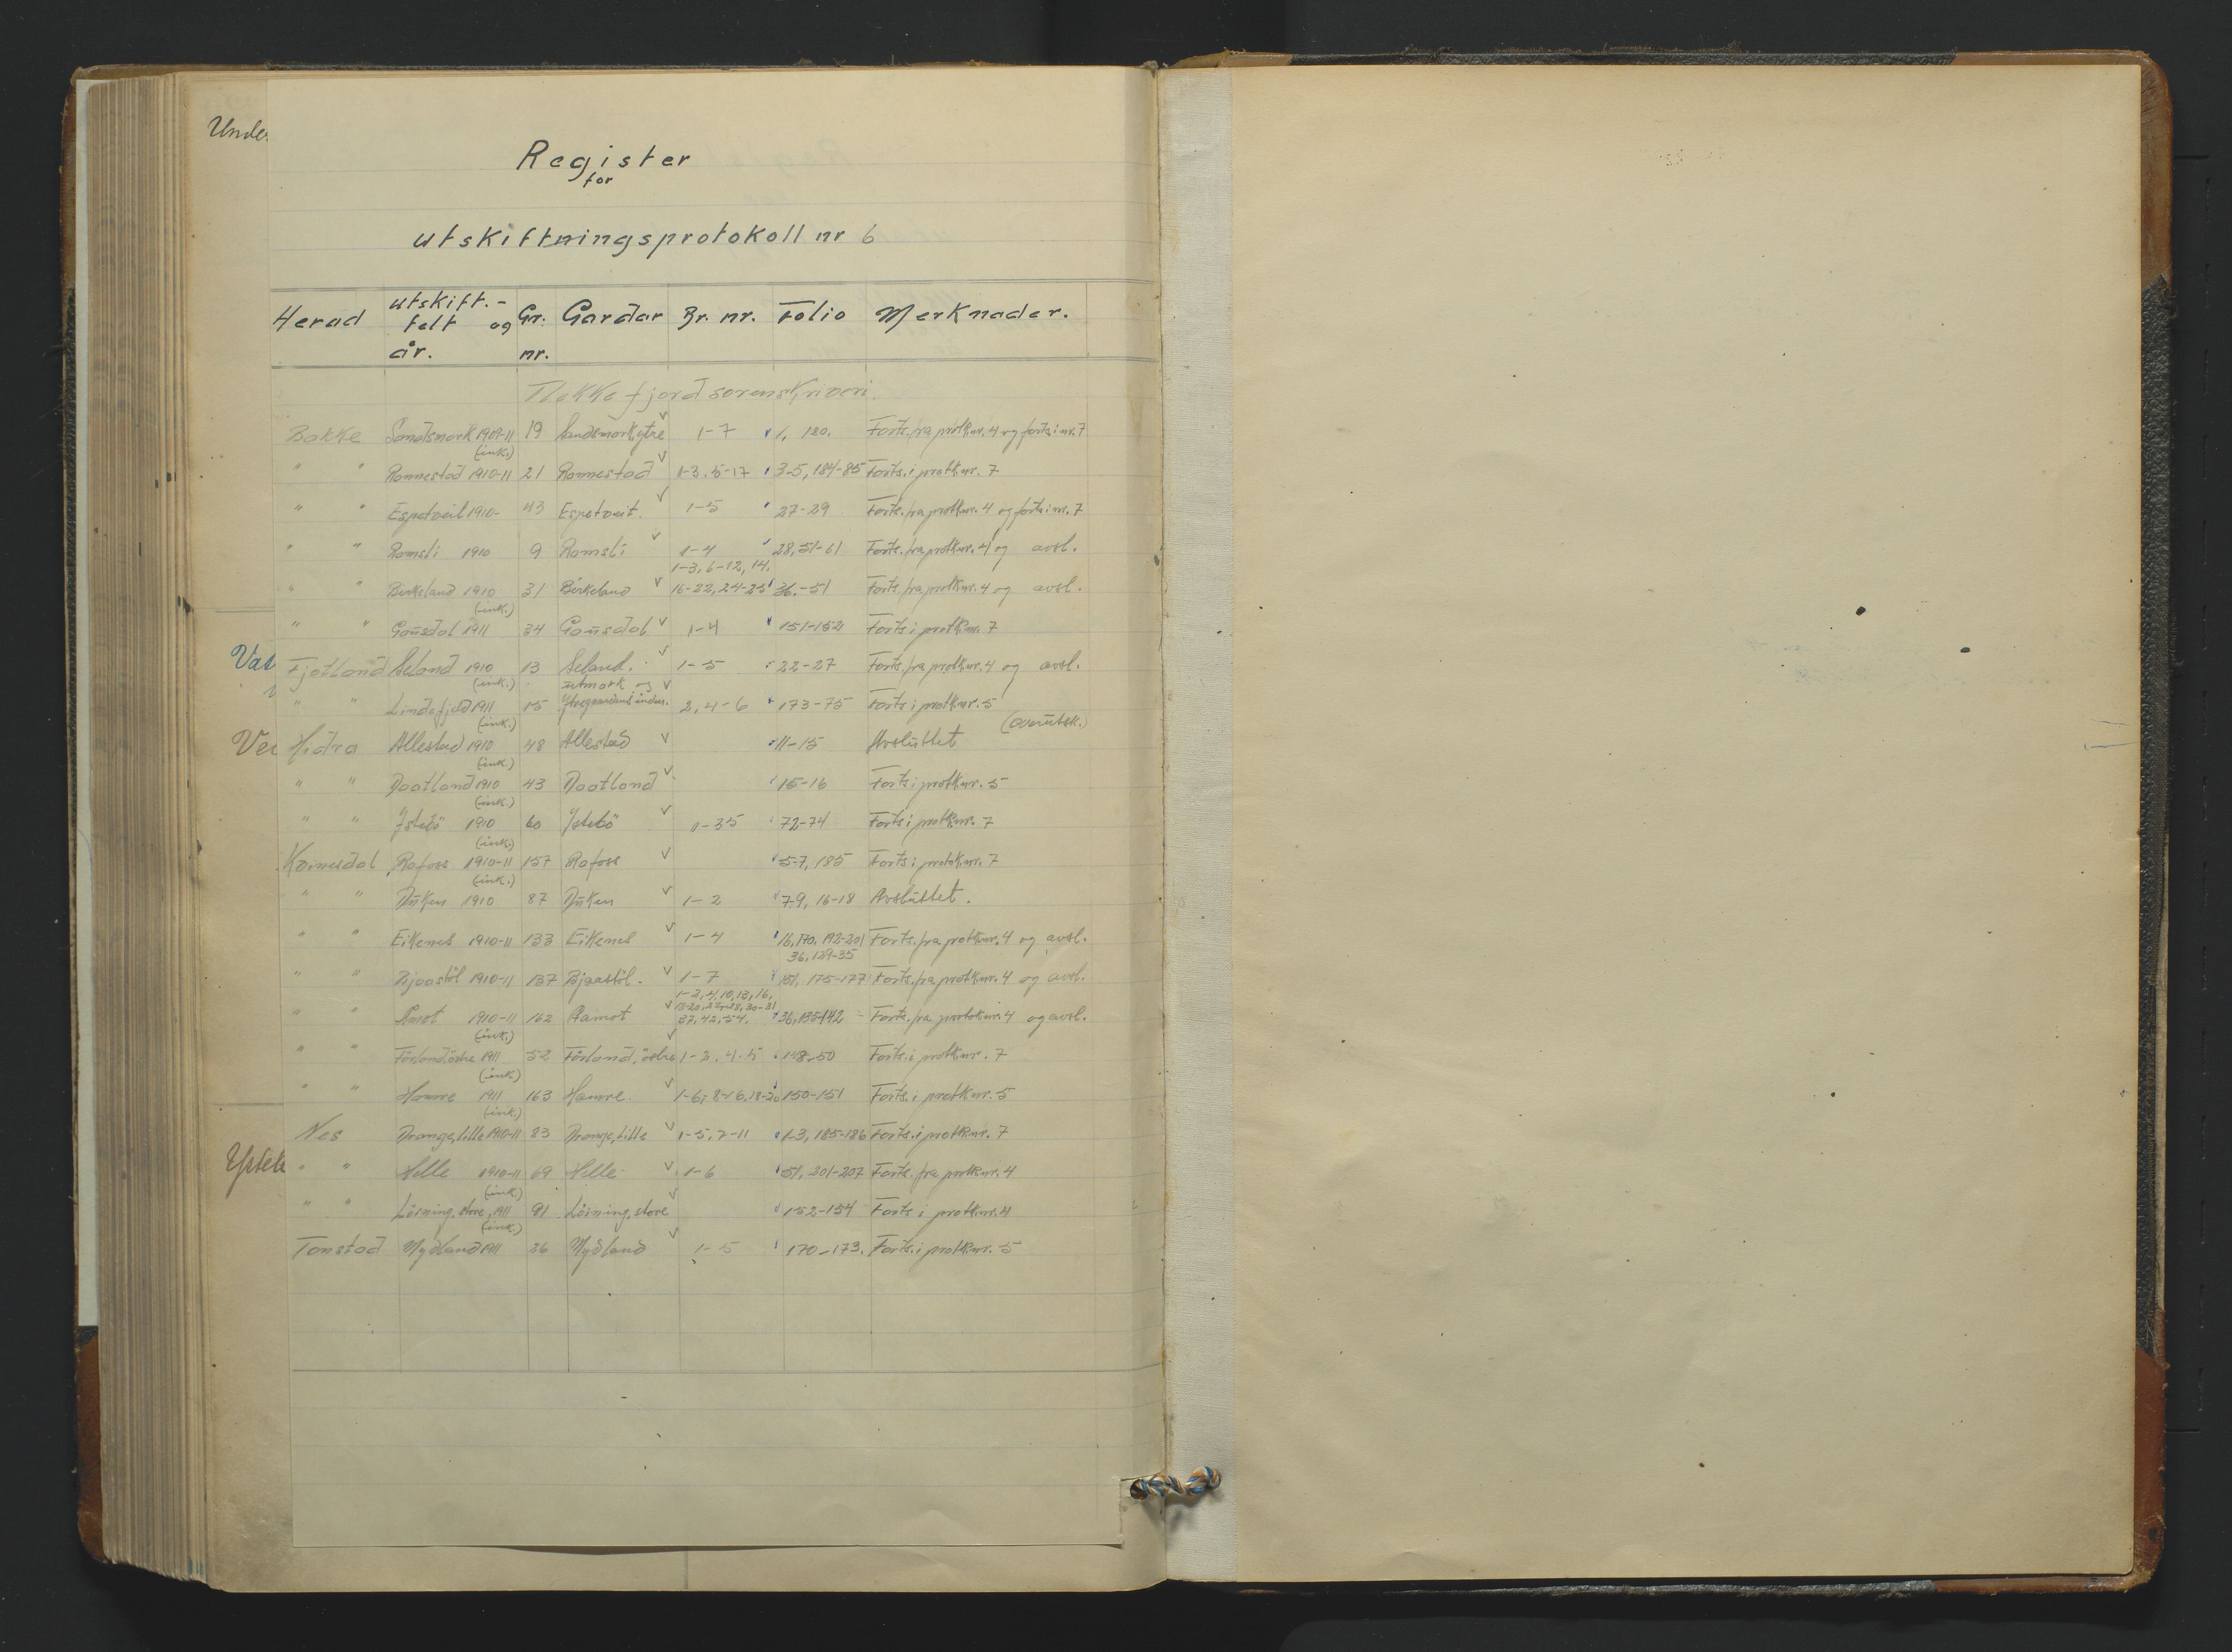 Unde
Register
for
utskiftningsprotokoll nr 6
Herad utskift.- felt og år. Gr. nr. Gardar Br. nr. Folio Merknader.
Flekkefjord sorenskriveri.
Bakke Sandsmark 1909-11 19 Sandsmark, ytre 1-7 1, 180. Forts. fra protk.nr. 4 og forts. i nr. 7
(ink.)
" " Ronnestad 1910-11 21 Ronnestad 1-3, 5-17 3-5, 184-85 Forts. i protk.nr. 7
" " Espetveit 1910- 43 Espetveit. 1-5 27-29 Forts. fra protk.nr. 4 og forts. i nr. 7
" " Romsli 1910 9 Romsli 1-4 28, 51-61 Forts. fra protk.nr. 4 og avsl.
1-3, 6-12, 14,
" " Birkeland 1910 31 Birkeland 16-22, 24-25 36-51 Forts. fra protk.nr. 4 og avsl.
(ink.)
" " Gausdal 1911 34 Gausdal 1-4 151-152 Forts. i protk.nr. 7
Vat
Fjotland Seland 1910 13 Seland. 1-5 22-27 Forts. fra protk.nr. 4 og avsl.
(ink.) utmark og
" " Lindefjeld 1911 15 2, 4-6 173-75 Forts. i protk.nr. 5
(ink.) (overutsk.)
Ver
Hidra Allestad 1910 48 Allestad 11-15 Avsluttet
(ink.)
" " Daatland 1910 43 Daatland 15-16 Forts. i protk.nr. 5
(ink.)
" " Istebö 1910 60 Istebö 1-35 72-74 Forts. i protk.nr. 7
(ink.)
Kvinesdal Rafoss 1910-11 157 Rafoss 5-7, 185 Forts. i protok.nr. 7
(ink.)
" " Duken 1910 87 Duken 1-2 7-9, 16-18 Avsluttet.
" " Eikenes 1910-11 133 Eikenes 1-4 16, 170, 192-201 Forts. fra protk.nr. 4 og avsl.
36, 129-35
" " Bjaastöl 1910-11 137 Bjaastöl. 1-7 151, 175-177 Forts. fra protk.nr. 4 og avsl.
1-2, 4, 10, 13, 16,
" " Åmot 1910-11 162 Aamot 37, 42, 54. 36, 135-142 Forts. fra protok.nr. 4 og avsl.
(ink.)
" " Förland, östre 1911 52 Förland, östre 1-2, 4-5 148-50 Forts. i protk.nr. 7
(ink.)
" " Hamre 1911 163 Hamre 1-6, 8-16, 18-20 150-151 Forts. i protk.nr. 5
(ink.)
Nes Drange, lille 1910-11 83 Drange, lille 1-5, 7-11 1-3, 185-186 Forts. i protk.nr. 7
" " Helle 1910-11 69 Helle 1-6 51, 201-207 Forts. fra protk.nr. 4
(ink.)
" " Lörning, store, 1911 91 Lörning, store 152-154 Forts. i protk.nr. 4
(ink.)
Tonstad Nydland 1911 36 Nydland 1-5 170-173. Forts. i protk.nr. 5